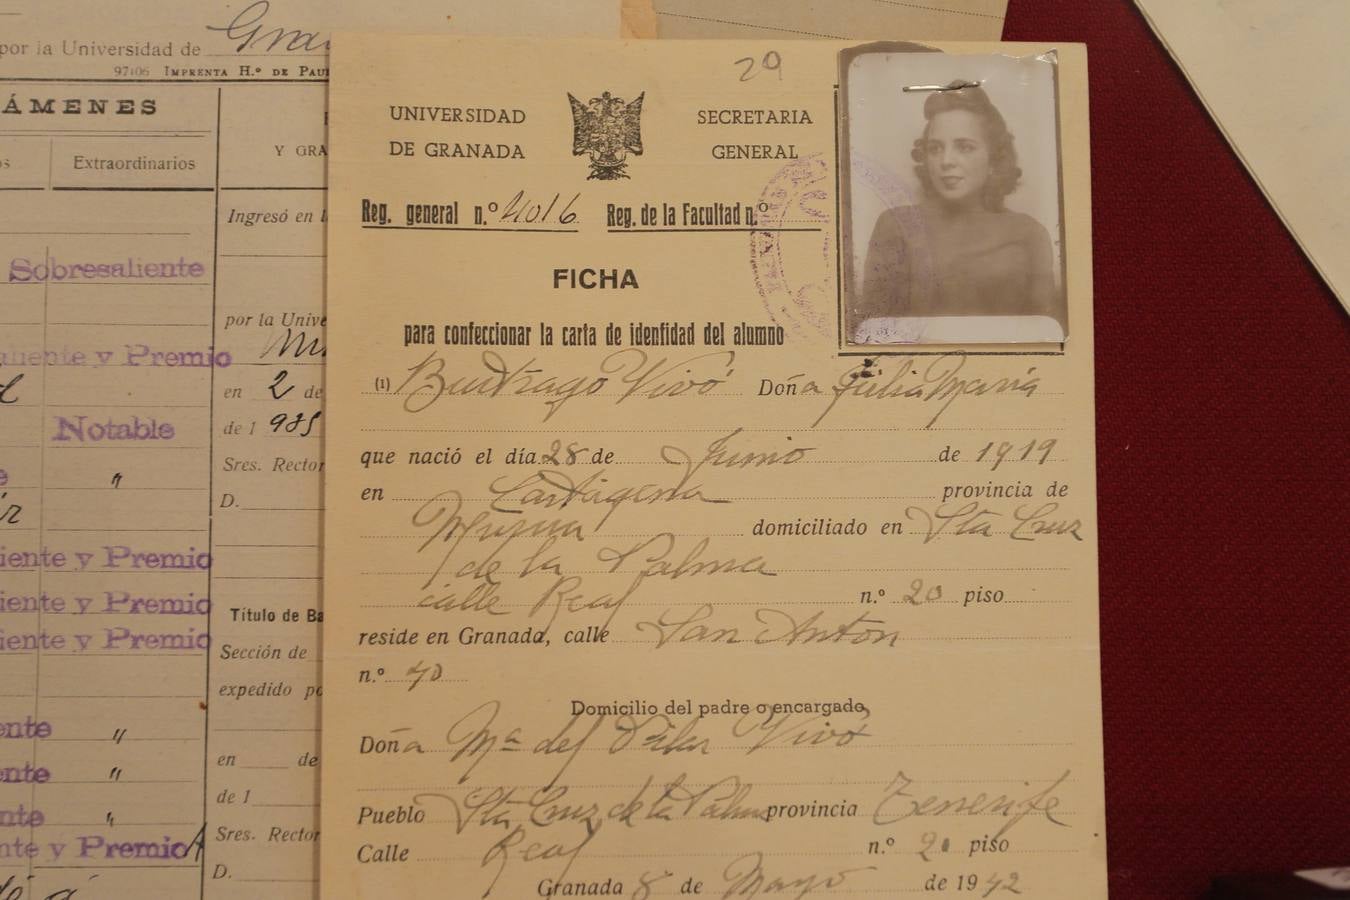 por la Universidad de Gra
97106 IMPRENTA H.º DE PAU
ÁMENES
Extraordinarios
Sobresaliente
y Premio
Notable
"
iente y Premio
iente y Premio
iente y Premio
ente "
ente "
nte "
nte y Premio
Y GRA
Ingresó en l
por la Unive
en 2 de
de 1 935
Sres. Rector
D.
Título de Ba
Sección de
expedido po
en de
de 1
Sres. Rector
D.
29
UNIVERSIDAD
DE GRANADA
SECRETARIA
GENERAL
Reg. general n.º 4016 Reg. de la Facultad n.º
FICHA
para confeccionar la carta de identidad del alumno
(1) Buitrago Vivó Doña Julia María
que nació el día 28 de Junio de 1919
en Cartagena provincia de
Murcia domiciliado en Sta Cruz
de la Palma
calle Real n.º 20 piso
reside en Granada, calle San Anton
n.º 40
Domicilio del padre o encargado
Doña Mª del Pilar Vivó
Pueblo Sta Cruz de la Palma provincia Tenerife
Calle Real n.º 20 piso
Granada 8 de Mayo de 1942